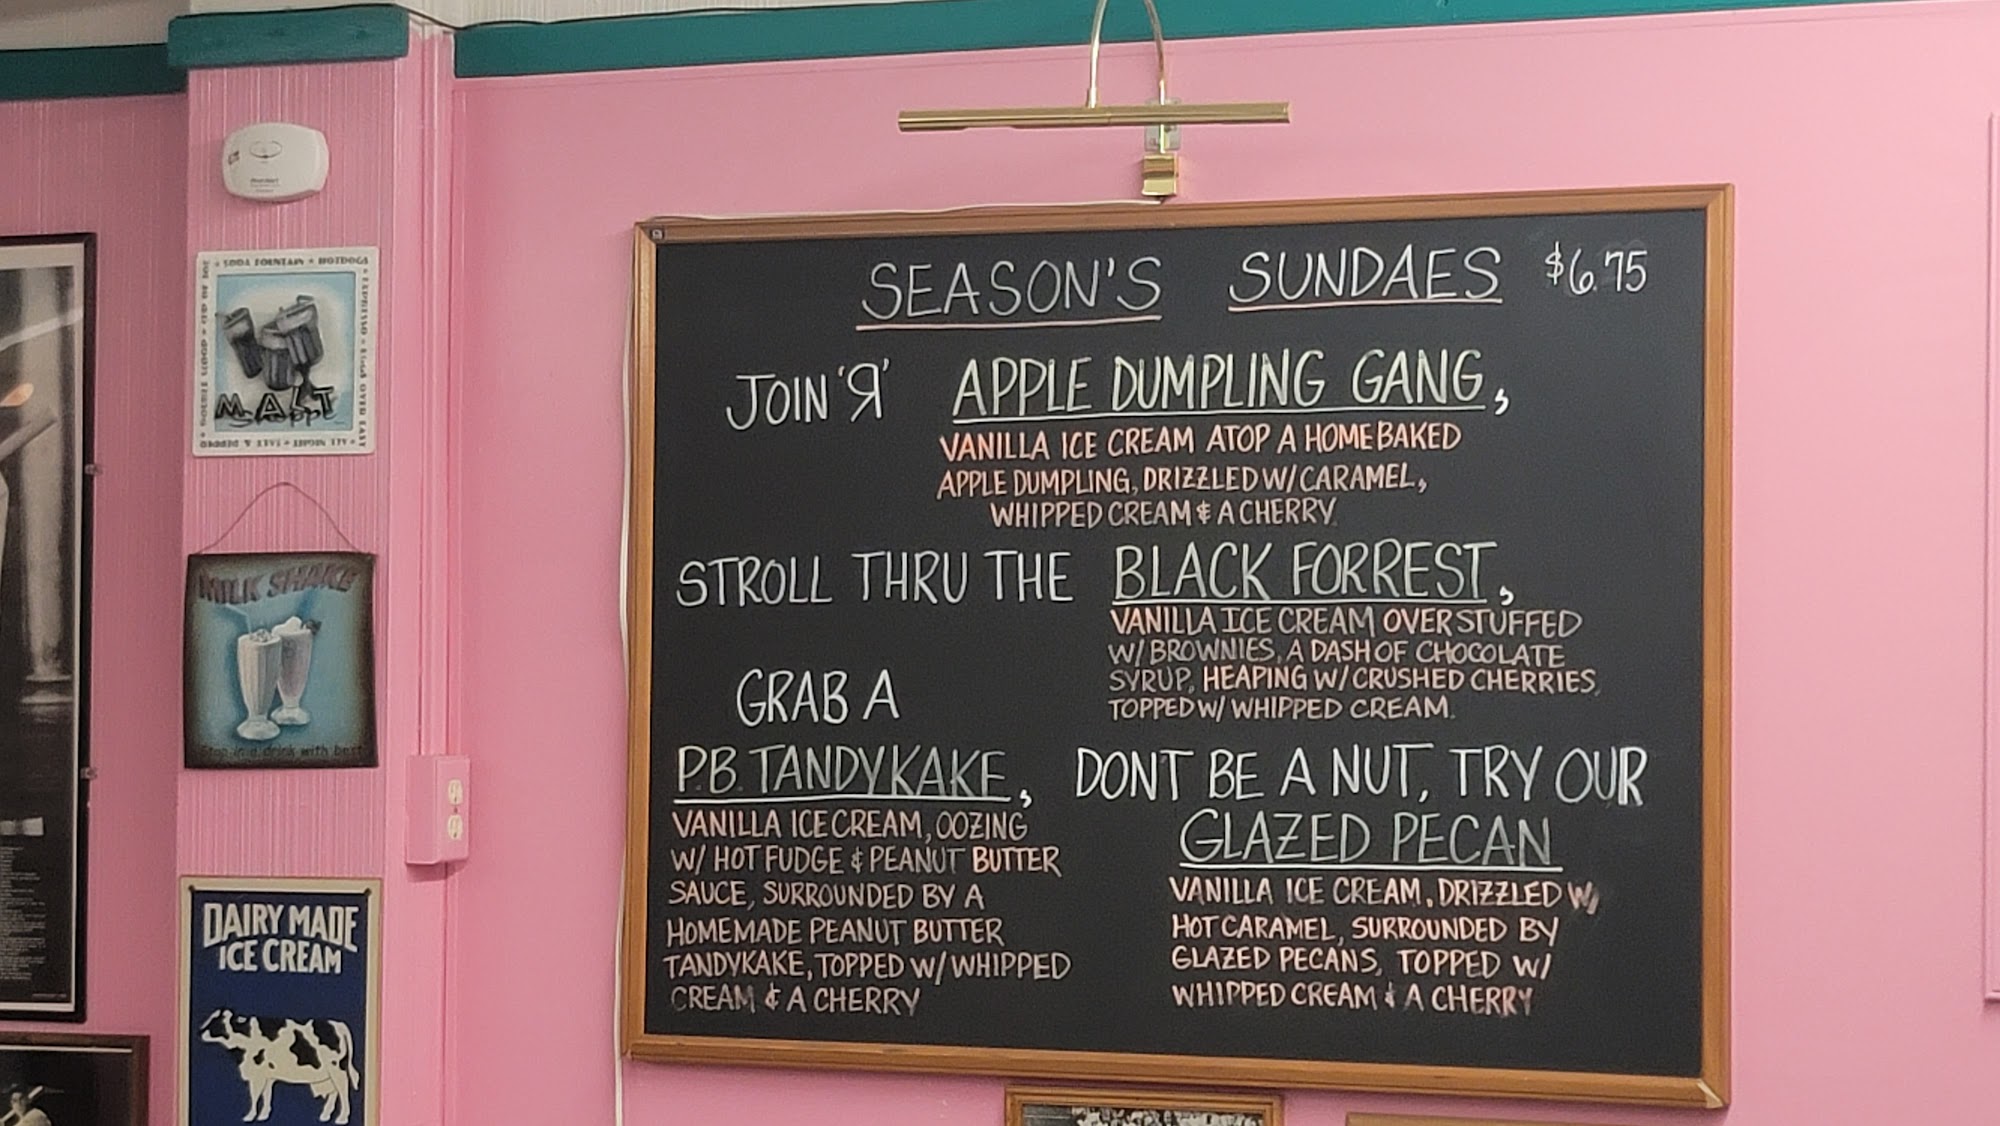 SEASON'S SUNDAES $6.75
JOIN 'Я' APPLE DUMPLING GANG,
VANILLA ICE CREAM ATOP A HOMEBAKED
APPLE DUMPLING, DRIZZLED W/ CARAMEL,
WHIPPED CREAM & A CHERRY.
STROLL THRU THE BLACK FORREST,
VANILLA ICE CREAM OVER STUFFED
W/ BROWNIES, A DASH OF CHOCOLATE
SYRUP, HEAPING W/ CRUSHED CHERRIES,
TOPPED W/ WHIPPED CREAM.
GRAB A
P.B. TANDYKAKE,
VANILLA ICE CREAM, OOZING
W/ HOT FUDGE & PEANUT BUTTER
SAUCE, SURROUNDED BY A
HOMEMADE PEANUT BUTTER
TANDYKAKE, TOPPED W/ WHIPPED
CREAM & A CHERRY
DONT BE A NUT, TRY OUR
GLAZED PECAN
VANILLA ICE CREAM, DRIZZLED W/
HOT CARAMEL, SURROUNDED BY
GLAZED PECANS, TOPPED W/
WHIPPED CREAM & A CHERRY
SODA FOUNTAIN • HOTDOGS
MALT
Shoppe
MILK SHAKE
Stop in a drink with best
DAIRY MADE
ICE CREAM